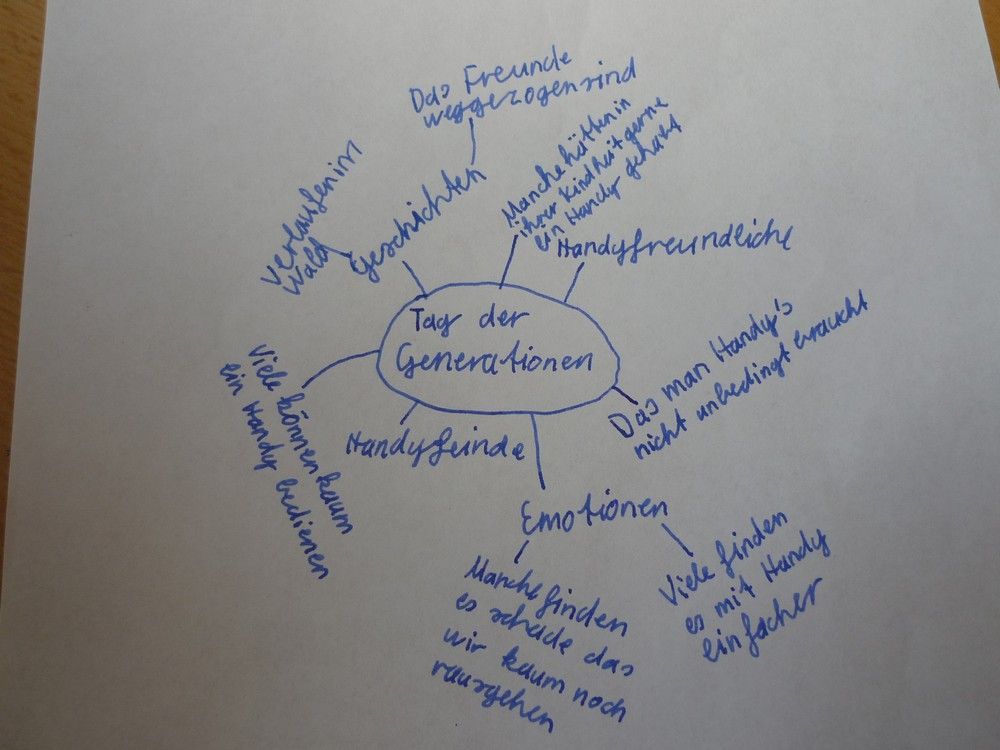 Das Freunde
weggezogen sind
Verlaufen im
Wald
Geschichten
Manche hätten in
ihrer Kindheit gerne
ein Handy gehabt
Handyfreundliche
Tag der
Generationen
Das man Handy's
nicht unbedingt braucht
Viele können kaum
ein Handy bedienen
Handyfeinde
Emotionen
Manche finden
es schade das
wir kaum noch
rausgehen
Viele finden
es mit Handy
einfacher